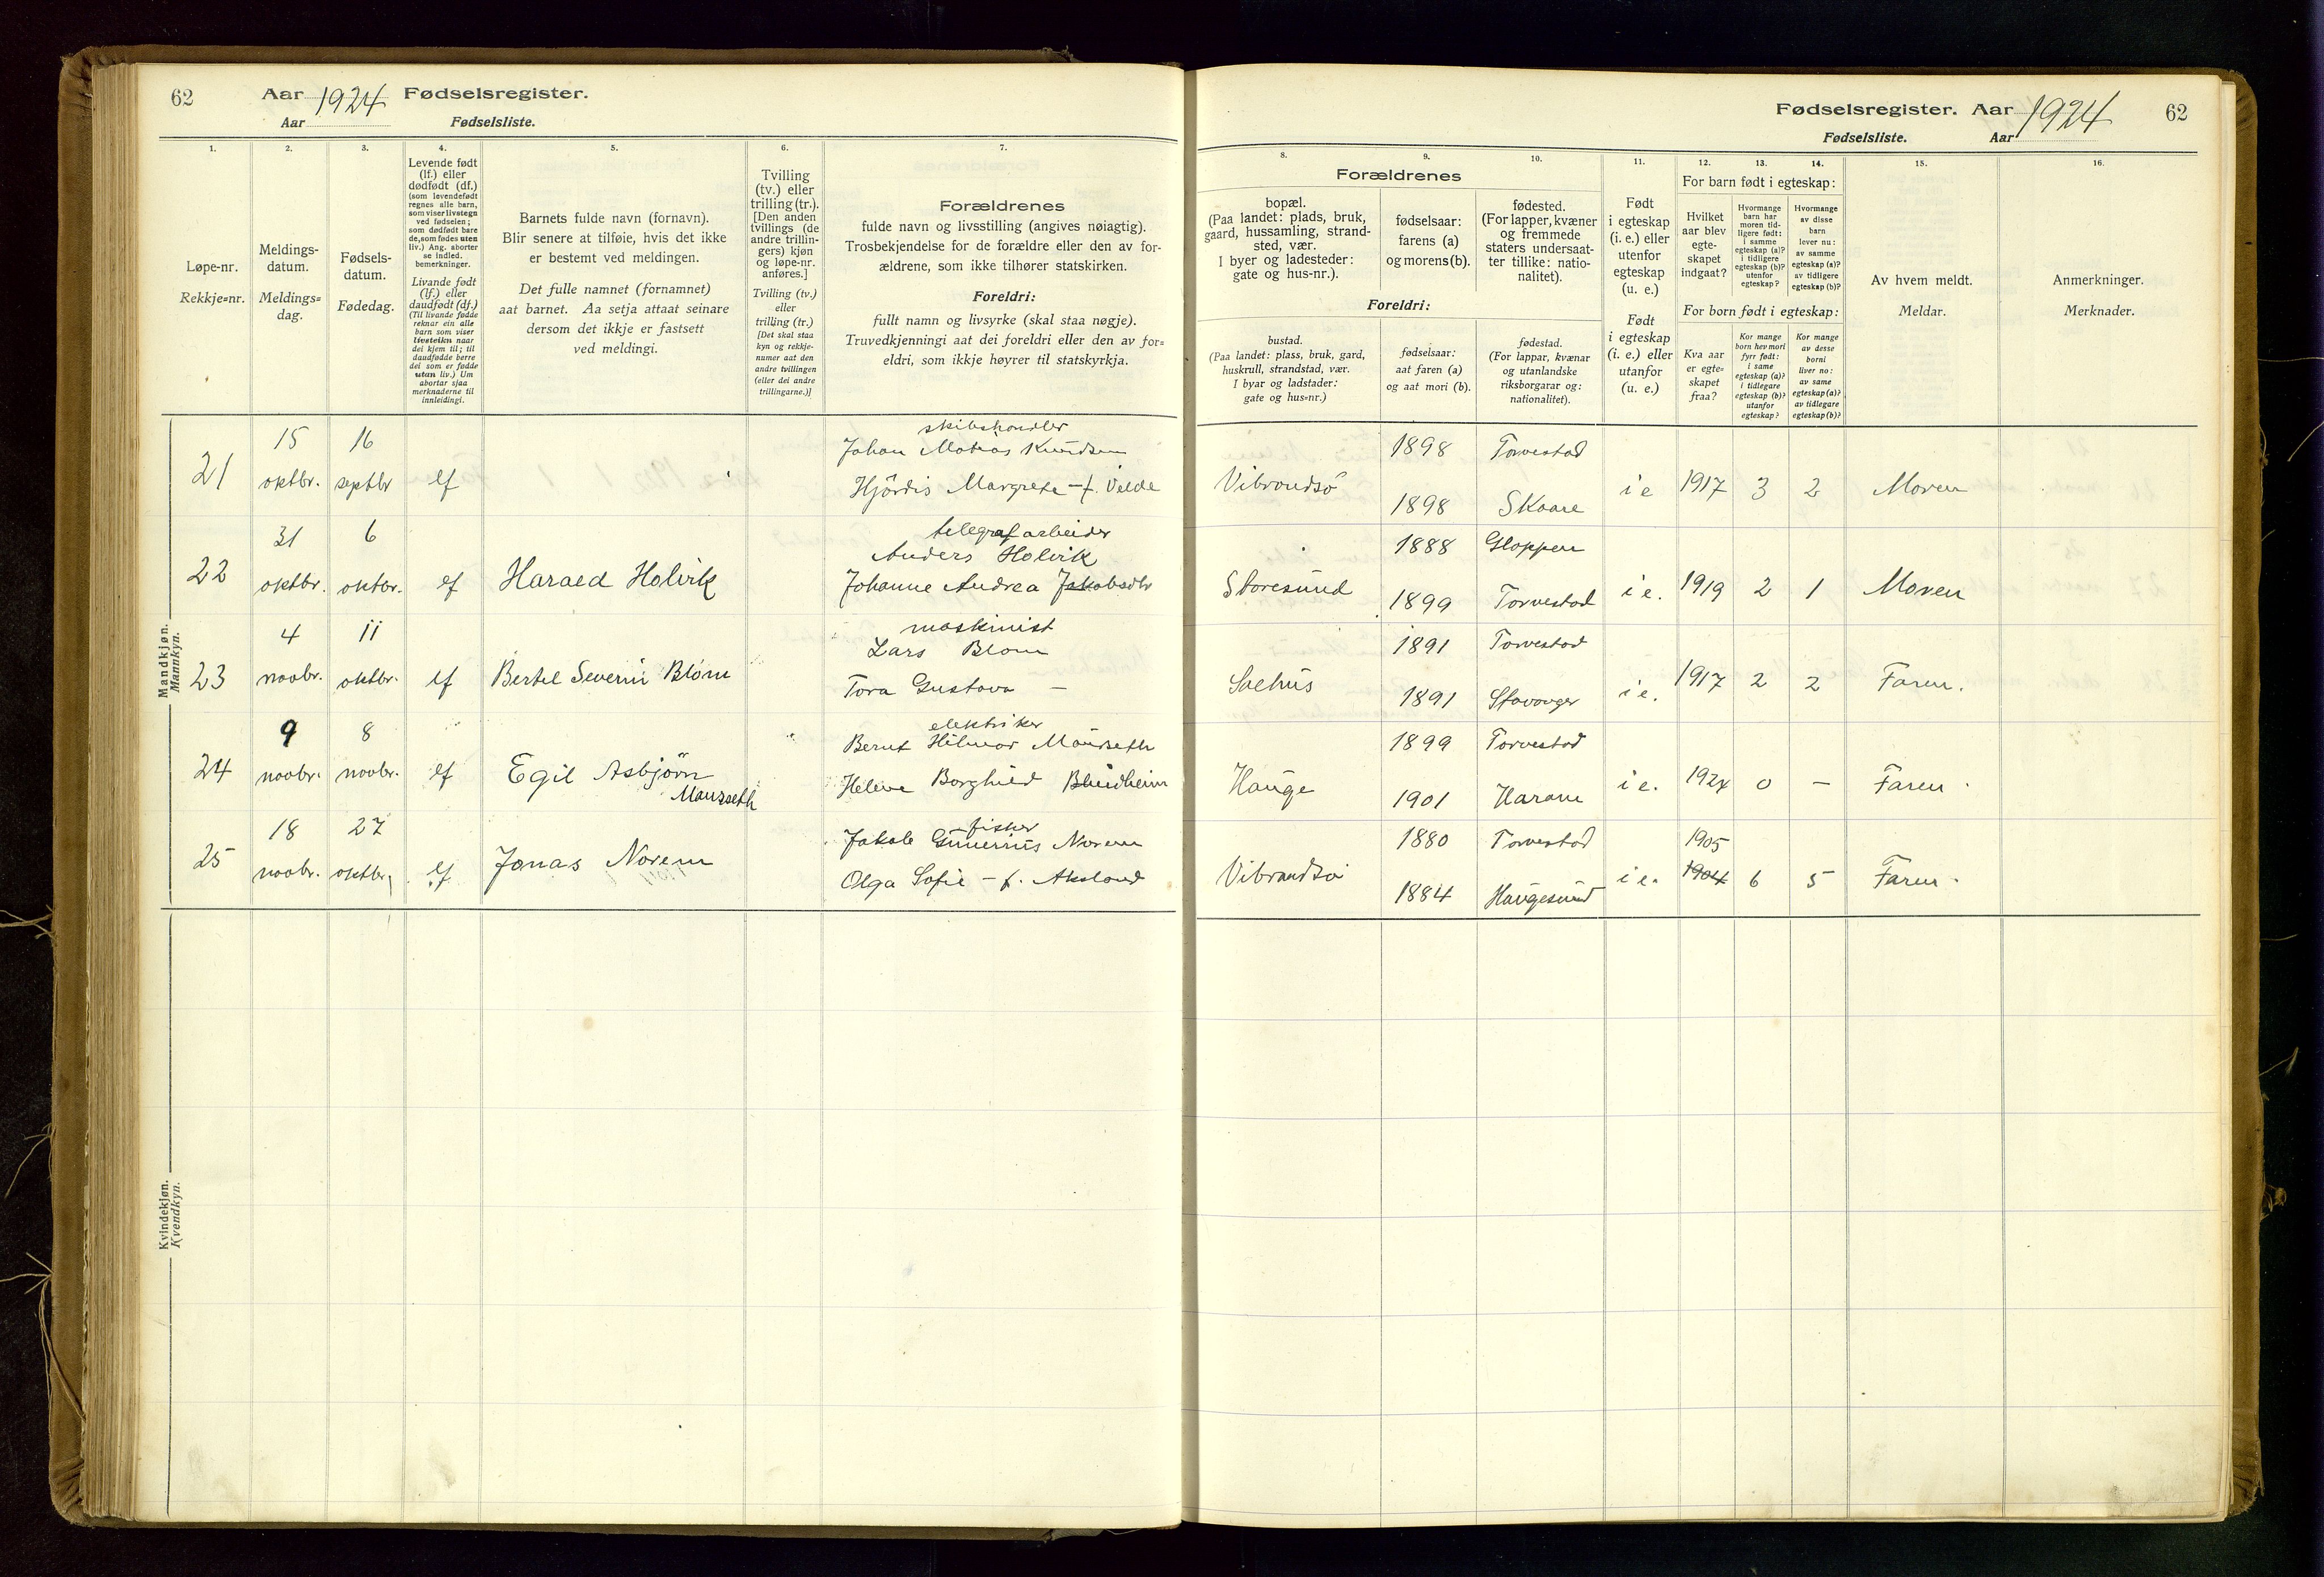 62
Aar 1924 Fødselsregister.
Aar Fødselsliste.
1.
2.
3.
4.
5.
6.
7.
Løpe-nr.
Rekkje=nr.
Meldings-
datum.
Meldings=
dag.
Fødsels-
datum.
Fødedag.
Levende født
(lf.) eller
dødfødt (df.)
(som levendefødt
regnes alle barn,
som viser livstegn
ved fødselen;
som dødfødt bare
de, som fødes uten
liv.) Ang. aborter
se indled.
bemerkninger.
Livande født
(lf.) eller
daudfødt (df.)
(Til livande fødde
reknar ein alle
barn som viser
livsteikn naar
dei kjem til; til
daudfødde berre
dei som er fødde
utan liv.) Um
abortar sjaa
merknaderne til
innleidingi.
Barnets fulde navn (fornavn).
Blir senere at tilføie, hvis det ikke
er bestemt ved meldingen.
Det fulle namnet (fornamnet)
aat barnet. Aa setja attaat seinare
dersom det ikkje er fastsett
ved meldingi.
Tvilling
(tv.) eller
trilling (tr.).
[Den anden
tvillings (de
andre trillin-
gers) kjøn
og løpe-nr.
anføres.]
Tvilling (tv.)
eller
trilling (tr.)
[Det skal staa
kyn og rekkje-
numer aat den
andre tvillingen
(eller dei andre
trillingarne.)]
Forældrenes
fulde navn og livsstilling (angives nøiagtig).
Trosbekjendelse for de forældre eller den av for-
ældrene, som ikke tilhører statskirken.
Foreldri:
fullt namn og livsyrke (skal staa nøgje).
Truvedkjenningi aat dei foreldri eller den av for=
eldri, som ikkje høyrer til statskyrkja.
Mandkjøn.
Mannkyn.
21
15
oktbr.
16
septbr
lf
skibshandler
Johan Matias Knudsen
Hjördis Margrete - f. Velde
22
31
oktbr.
6
oktbr.
lf
Harald Holvik
telegrafarbeider
Anders Holvik
Johanne Andrea Jakobsdtr
23
4
novbr.
11
oktbr.
lf
Bertel Severin Blom
maskinist
Lars Blom
Tora Gustava —
24
9
novbr.
8
novbr.
lf
Egil Asbjørn
Maurseth
elektriker
Bernt Hilmar Maurseth
Helene Borghild Blindheim
25
18
novbr.
27
oktbr.
lf
Jonas Norem
fisker
Jakob Gunerius Norem
Olga Sofie - f. Aksland
Kvindekjøn.
Kvendkyn.
Fødselsregister. Aar 1924 62
Fødselsliste. Aar
8.
9.
10.
11.
12.
13.
14.
15.
16.
Forældrenes
bopæl.
(Paa landet: plads, bruk,
gaard, hussamling, strand-
sted, vær.
I byer og ladesteder:
gate og hus-nr.).
fødselsaar:
farens (a)
og morens (b).
fødested.
(For lapper, kvæner
og fremmede
staters undersaat-
ter tillike: natio-
nalitet).
Foreldri:
bustad.
(Paa landet: plass, bruk, gard,
huskrull, strandstad, vær.
I byar og ladstader:
gate og hus=nr.)
fødselsaar:
aat faren (a)
og aat mori (b).
fødestad.
(For lappar, kvænar
og utanlandske
riksborgarar og:
nationalitet).
Født
i egteskap
(i. e.) eller
utenfor
egteskap
(u. e.)
Født
i egteskap
(i. e.) eller
utanfor
(u. e.)
For barn født i egteskap:
Hvilket
aar blev
egte-
skapet
indgaat?
Hvormange
barn har
moren tid-
ligere født:
i samme
egteskap (a)?
i tidligere
egteskap (b)?
utenfor
egteskap?
Hvormange
av disse
barn
lever nu:
av samme
egteskap (a)?
av tidligere
egteskap (b)?
For born født i egteskap:
Kva aar
er egte=
skapet
fraa?
Kor mange
born hev mori
fyrr født:
i same
egteskap (a)?
i tidlegare
egteskap (b)?
utanfor
egteskap?
Kor mange
av desse
borni
liver no:
av same
egteskap (a)?
av tidlegare
egteskap (b)?
Av hvem meldt.
Meldar.
Anmerkninger.
Merknader.
Vibrandsö
1898
1898
Torvestad
Skaare
i e
1917
3
2
Moren
Storesund
1888
1899
Gloppen
Torvestad
i e.
1919
2
1
Moren
Salhus
1891
1891
Torvestad
Stavanger
i e.
1917
2
2
Faren.
Hauge
1899
1901
Torvestad
Haram
i e.
1924
0
—
Faren.
Vibrandsö
1880
1884
Torvestad
Haugesund
i e.
1905
1904
6
5
Faren.